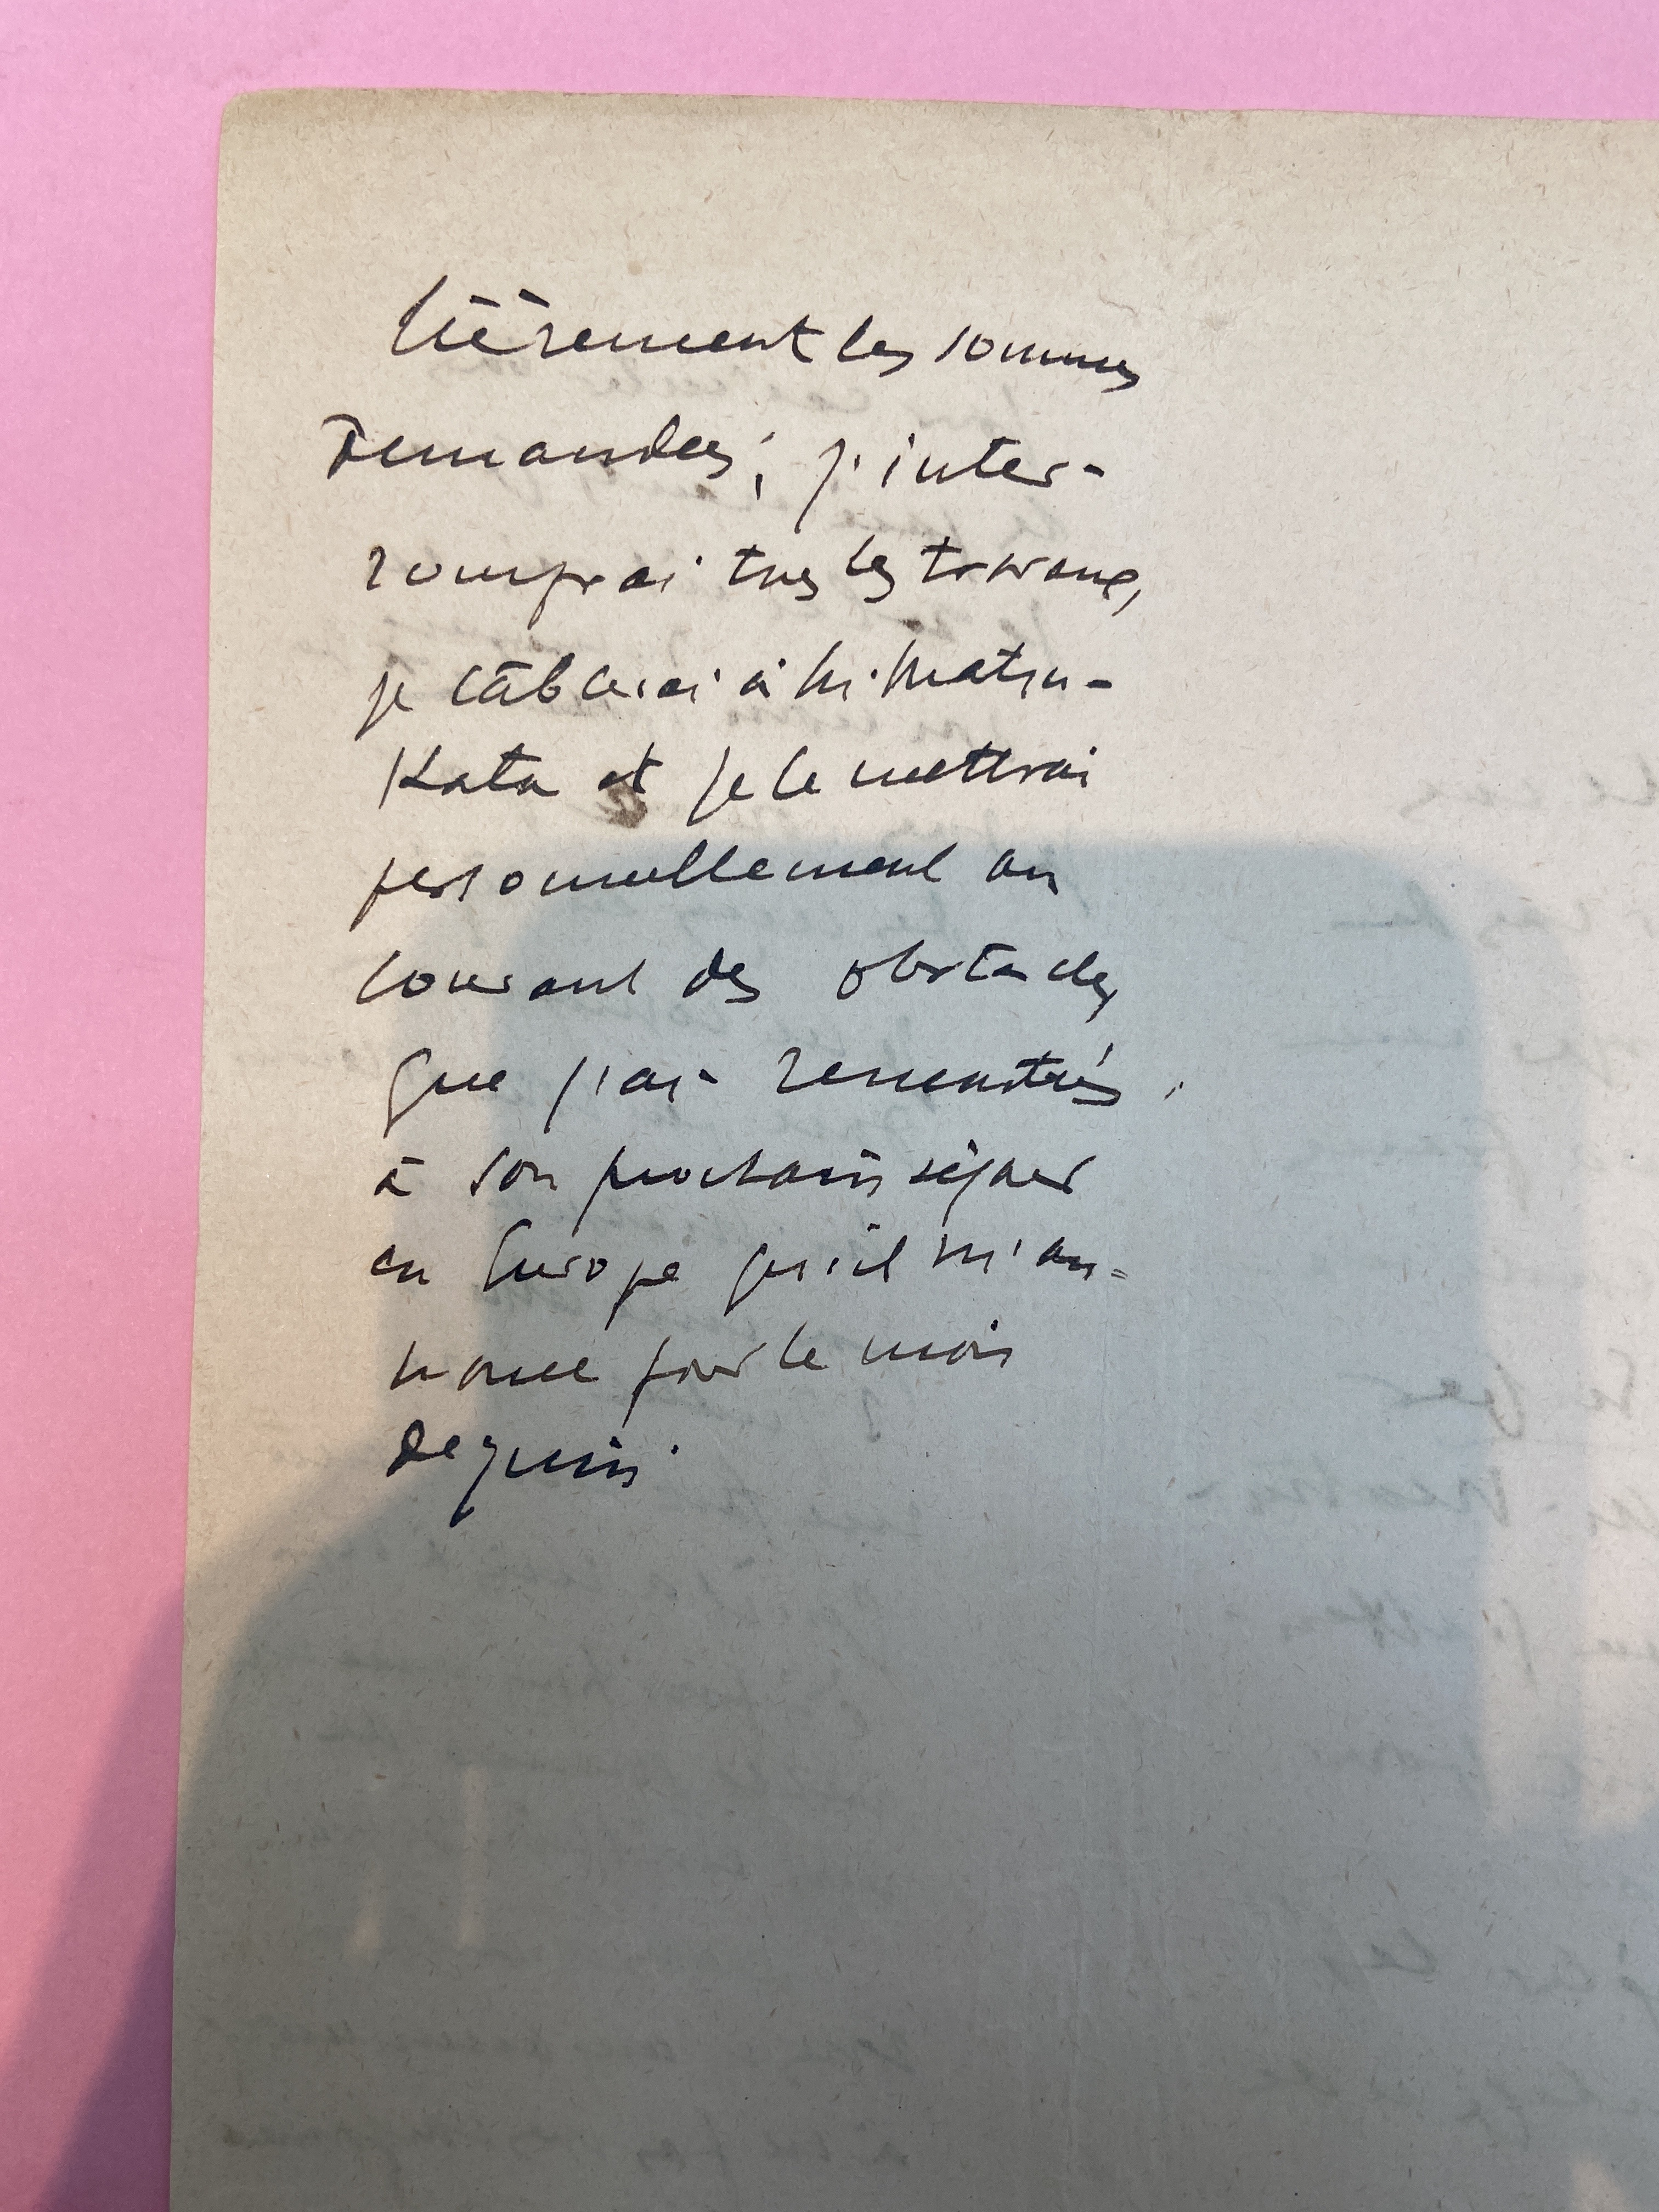 tièrement les sommes
demandées ; j'inter-
romprai tous les travaux,
je câblerai à M. Matsu-
Kata et je le mettrai
personnellement au
courant des obstacles
que j'ai rencontrés,
à son prochain séjour
en Europe qu'il m'an-
nonce pour le mois
de juin.